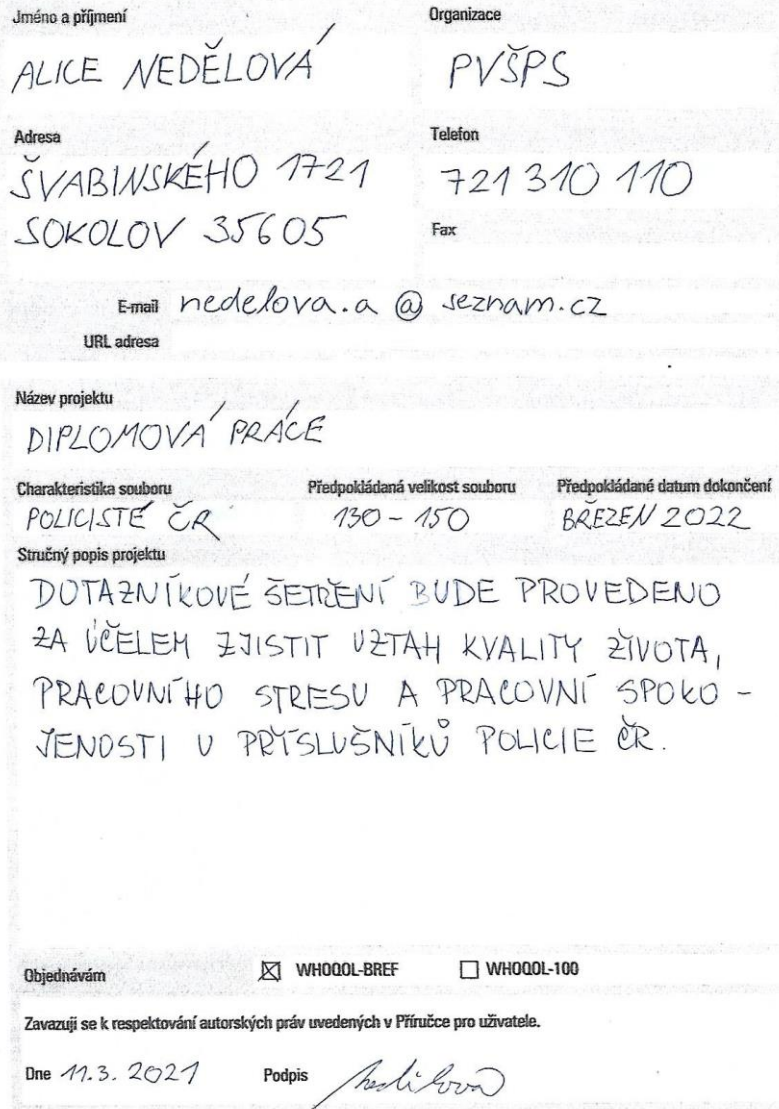 Jméno a příjmení Organizace
ALICE NEDĚLOVÁ PVŠPS
Adresa Telefon
ŠVABINSKÉHO 1721 721 310 110
SOKOLOV 35605 Fax
E-mail nedelova.a @ seznam.cz
URL adresa
Název projektu
DIPLOMOVÁ PRÁCE
Charakteristika souboru Předpokládaná velikost souboru Předpokládané datum dokončení
POLICISTÉ ČR 130 - 150 BŘEZEN 2022
Stručný popis projektu
DOTAZNÍKOVÉ ŠETŘENÍ BUDE PROVEDENO
ZA ÚČELEM ZJISTIT VZTAH KVALITY ŽIVOTA,
PRACOVNÍHO STRESU A PRACOVNÍ SPOKO -
JENOSTI U PŘÍSLUŠNÍKŮ POLICIE ČR.
Objednávám ☒ WHOQOL-BREF ☐ WHOQOL-100
Zavazuji se k respektování autorských práv uvedených v Příručce pro uživatele.
Dne 11.3. 2021 Podpis Nedělová